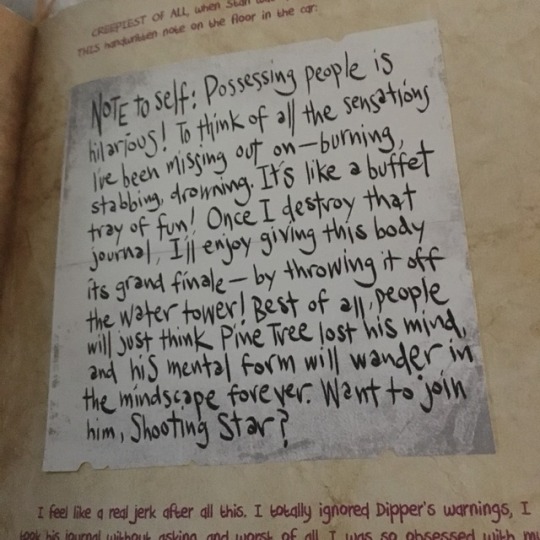 CREEPIEST OF ALL, when Stan
THIS handwritten note on the floor in the car:
NOTE to self: Possessing people is
hilarious! To think of all the sensations
I've been missing out on—burning,
stabbing, drowning. It's like a buffet
tray of fun! Once I destroy that
journal, I'll enjoy giving this body
its grand finale—by throwing it off
the water tower! Best of all, people
will just think Pine Tree lost his mind,
and his mental form will wander in
the mindscape forever. Want to join
him, Shooting Star?
I feel like a real jerk after all this. I totally ignored Dipper's warnings, I
took his journal without asking, and worst of all I was so obsessed with my